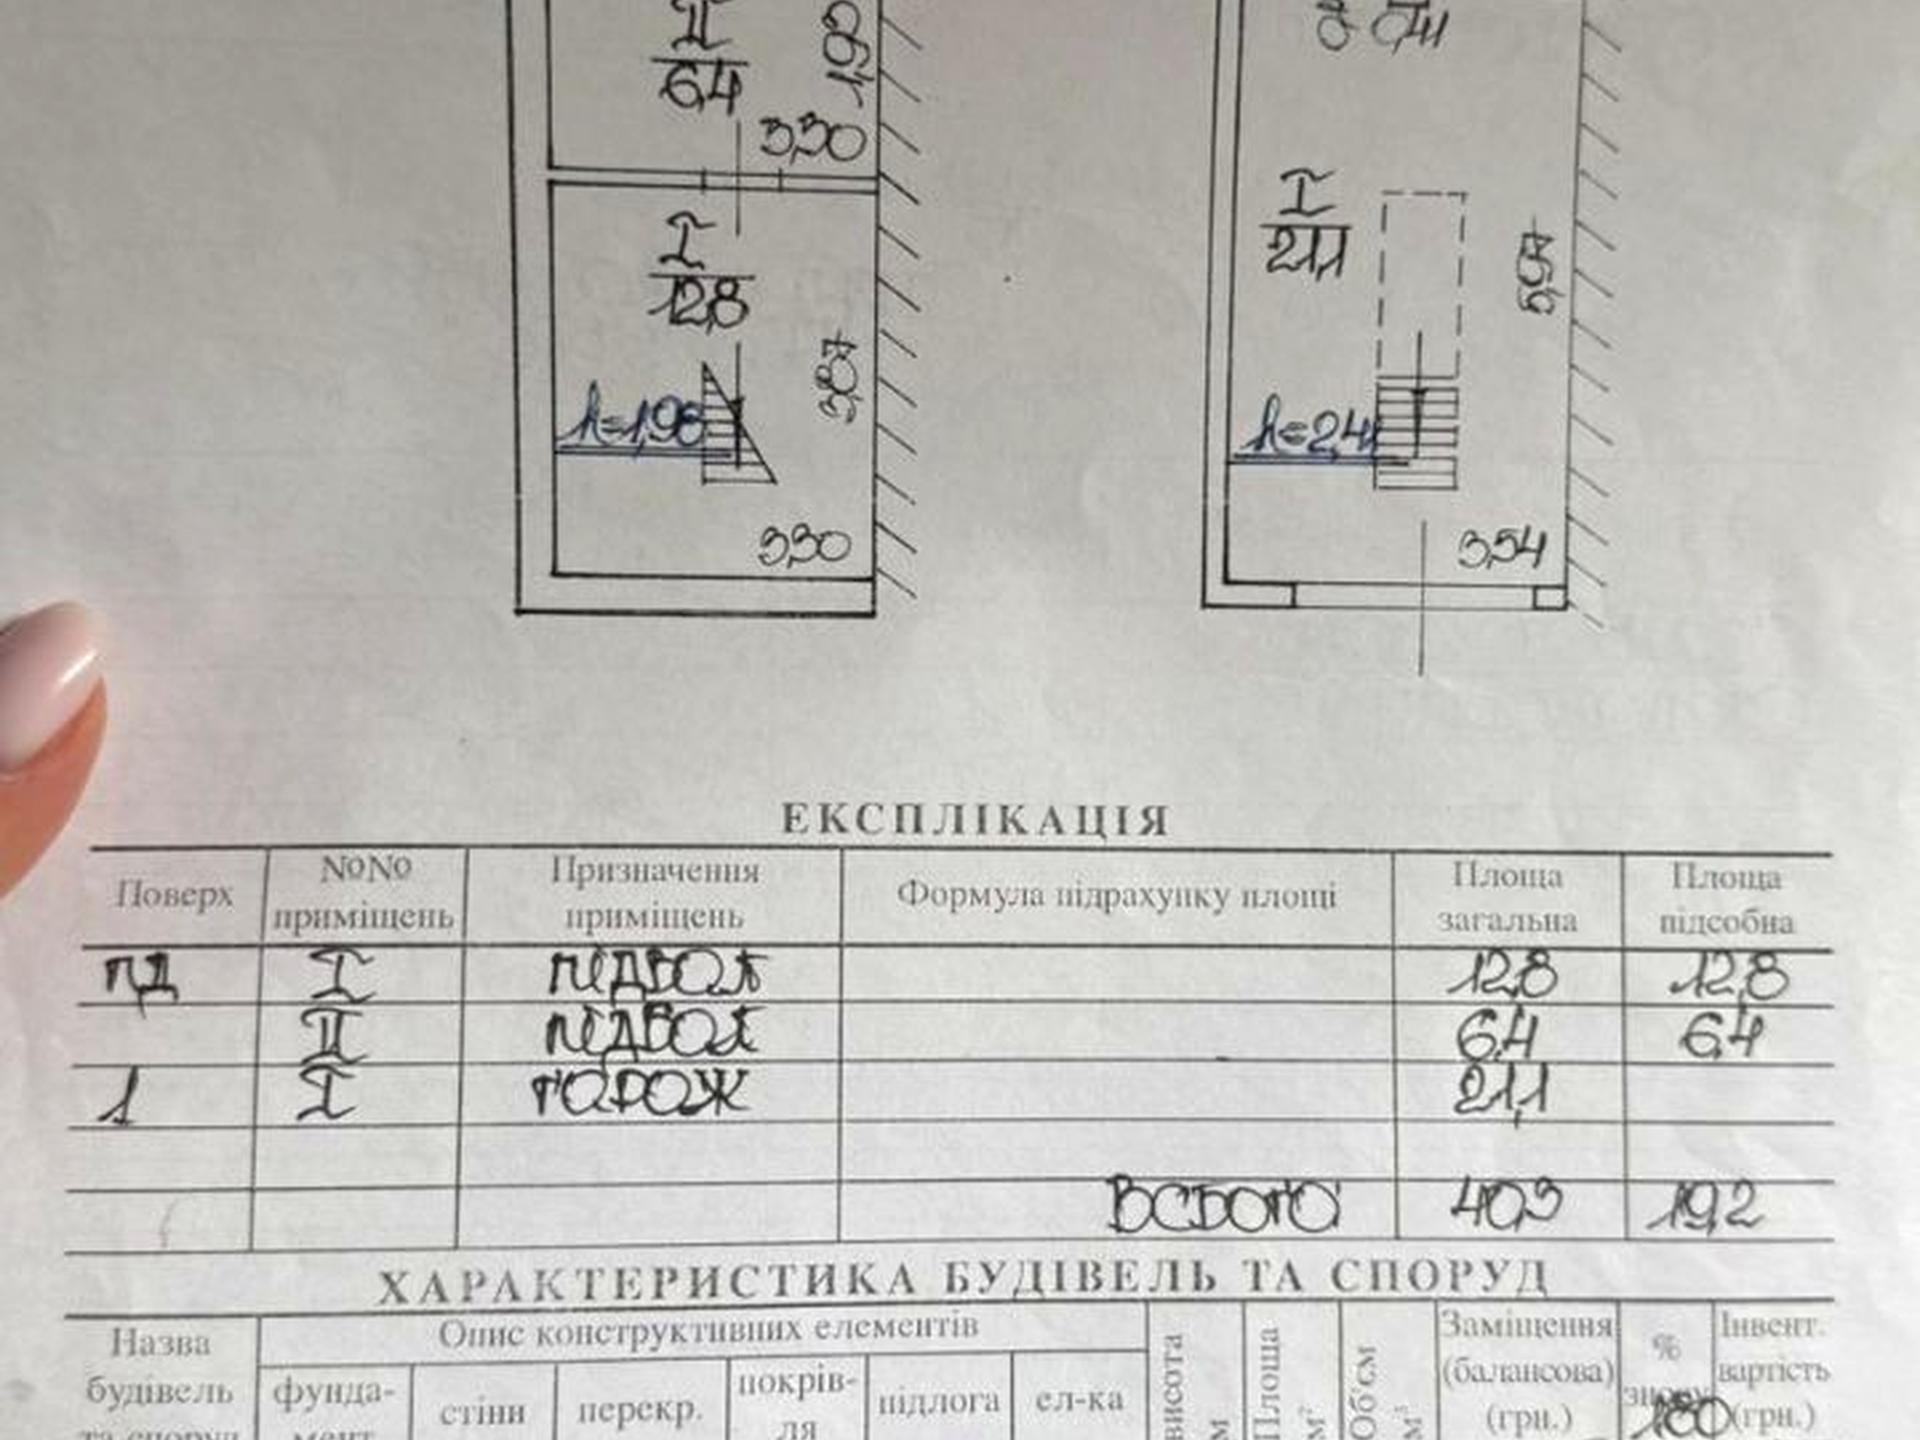 II
6,4
1,92
3,30
I
12,8
3,87
h=1,98
3,30
0,41
I
21,1
5,97
h=2,41
3,54
ЕКСПЛІКАЦІЯ
Поверх №№ приміщень Призначення приміщень Формула підрахунку площі Площа загальна Площа підсобна
пд I підвал 12,8 12,8
II підвал 6,4 6,4
1 I гараж 21,1
ВСЬОГО 40,3 19,2
ХАРАКТЕРИСТИКА БУДІВЕЛЬ ТА СПОРУД
Назва будівель та споруд
Опис конструктивних елементів
фунда-
мент
стіни
перекр.
покрів-
ля
підлога
ел-ка
висота м
Площа м²
Об'єм м³
Заміщення (балансова) (грн.)
% зносу
Інвент. вартість (грн.)